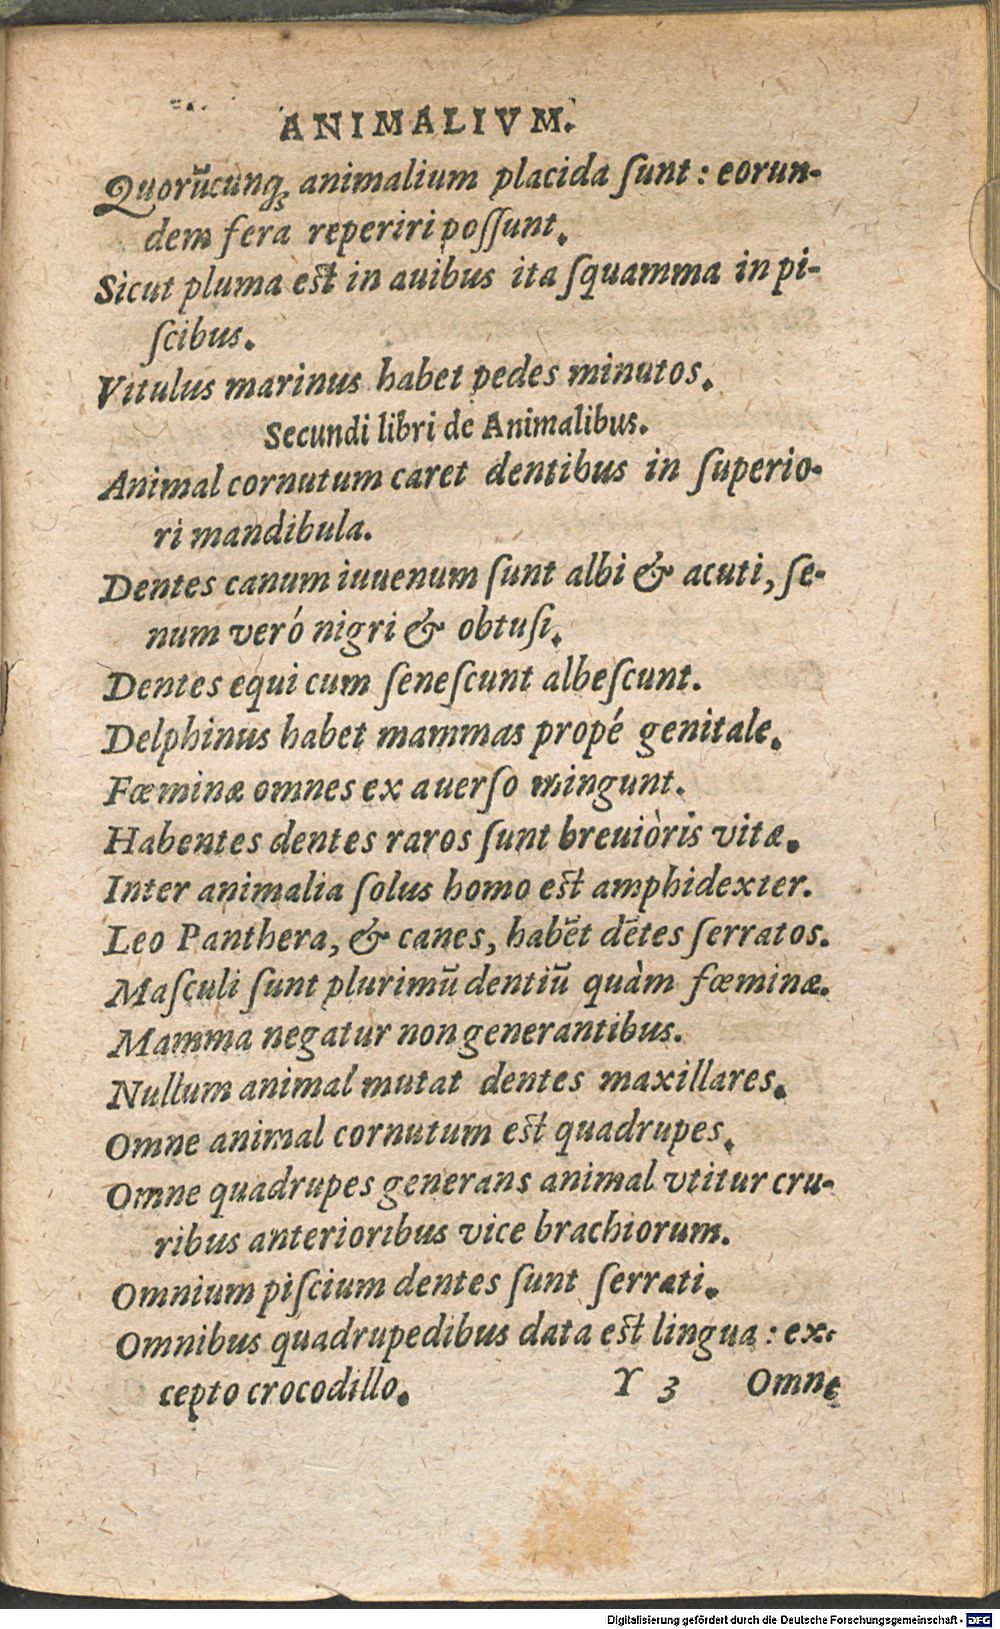 ANIMALIVM.
Quorũcunqꝫ animalium placida ſunt: eorun-
dem fera reperiri poſſunt.
Sicut pluma eſt in auibus ita ſquamma in pi-
ſcibus.
Vitulus marinus habet pedes minutos.
Secundi libri de Animalibus.
Animal cornutum caret dentibus in ſuperio-
ri mandibula.
Dentes canum iuuenum ſunt albi & acuti, ſe-
num veró nigri & obtuſi.
Dentes equi cum ſeneſcunt albeſcunt.
Delphinus habet mammas propé genitale.
Fœminæ omnes ex auerſo mingunt.
Habentes dentes raros ſunt breuiòris vitæ.
Inter animalia ſolus homo eſt amphidexter.
Leo Panthera, & canes, habẽt dẽtes ſerratos.
Maſculi ſunt plurimũ dentiũ quàm fœminæ.
Mamma negatur non generantibus.
Nullum animal mutat dentes maxillares.
Omne animal cornutum eſt quadrupes.
Omne quadrupes generans animal vtitur cru-
ribus anterioribus vice brachiorum.
Omnium piſcium dentes ſunt ſerrati.
Omnibus quadrupedibus data eſt lingua: ex-
cepto crocodillo.
Y 3 Omne
Digitalisierung gefördert durch die Deutsche Forschungsgemeinschaft - DFG